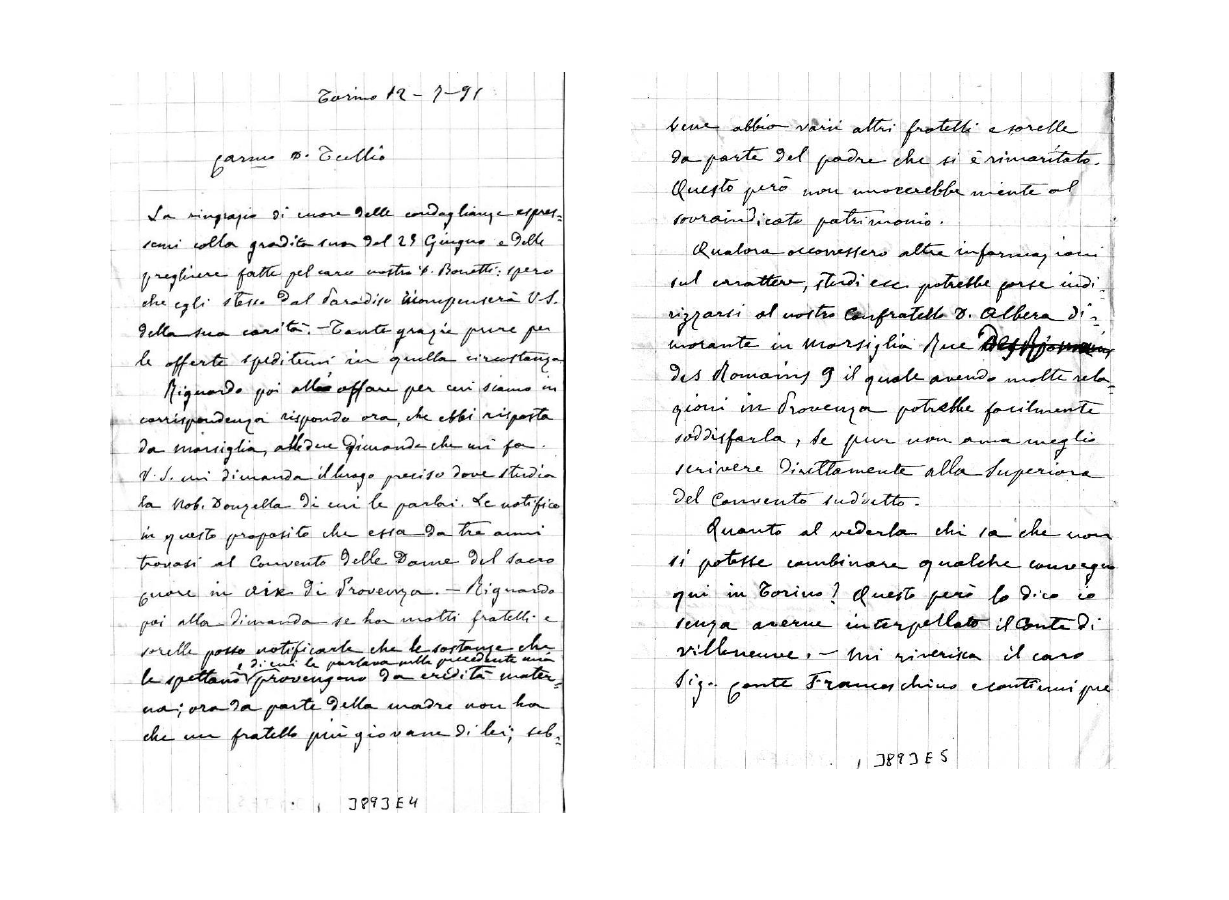 Torino 12-7-91
Carmo D. Tullio
La ringrazio di cuore delle condoglianze espres=
semi colla gradita sua del 25 Giugno e delle
preghiere fatte pel caro nostro D. Bonetti: spero
che egli stesso dal Paradiso ricompenserà V.S.
della sua carità. - Tante grazie pure per
le offerte speditemi in quella circostanza
Riguardo poi all' affare per cui siamo in
corrispondenza rispondo ora, che ebbi risposta
da Marsiglia, alle due dimande che mi fa.
V.S. mi dimanda il luogo preciso dove studia
la Nob. Donzella di cui le parlai. Le notifico
in questo proposito che essa da tre anni
trovasi al Convento delle Dame del Sacro
Cuore in Aix di Provenza. - Riguardo
poi alla dimanda se ha molti fratelli e
sorelle posso notificarle che le sostanze che
, di cui le parlava nella precedente mia
le spettano provengono da eredità mater=
na; ora da parte della madre non ha
che un fratello più giovane di lei; seb=
J893E4
bene abbia varii altri fratelli e sorelle
da parte del padre che si è rimaritato.
Questo però non nuocerebbe niente al
sovraindicato patrimonio.
Qualora occorressero altre informazioni
sul carattere, studi ecc. potrebbe forse indi=
rizzarsi al nostro Confratello D. Albera di=
morante in Marsiglia Rue
des Romains 9 il quale avendo molte rela=
zioni in Provenza potrebbe facilmente
soddisfarla, se pur non ama meglio
scrivere direttamente alla Superiora
del Convento sudetto.
Quanto al vederla chi sa che non
si potesse combinare qualche convegno
qui in Torino? Questo però lo dico io
senza averne interpellato il Conte di
Villeneuve. - Mi riverisca il caro
Sig. Conte Franceschino e continui pre
J893E5